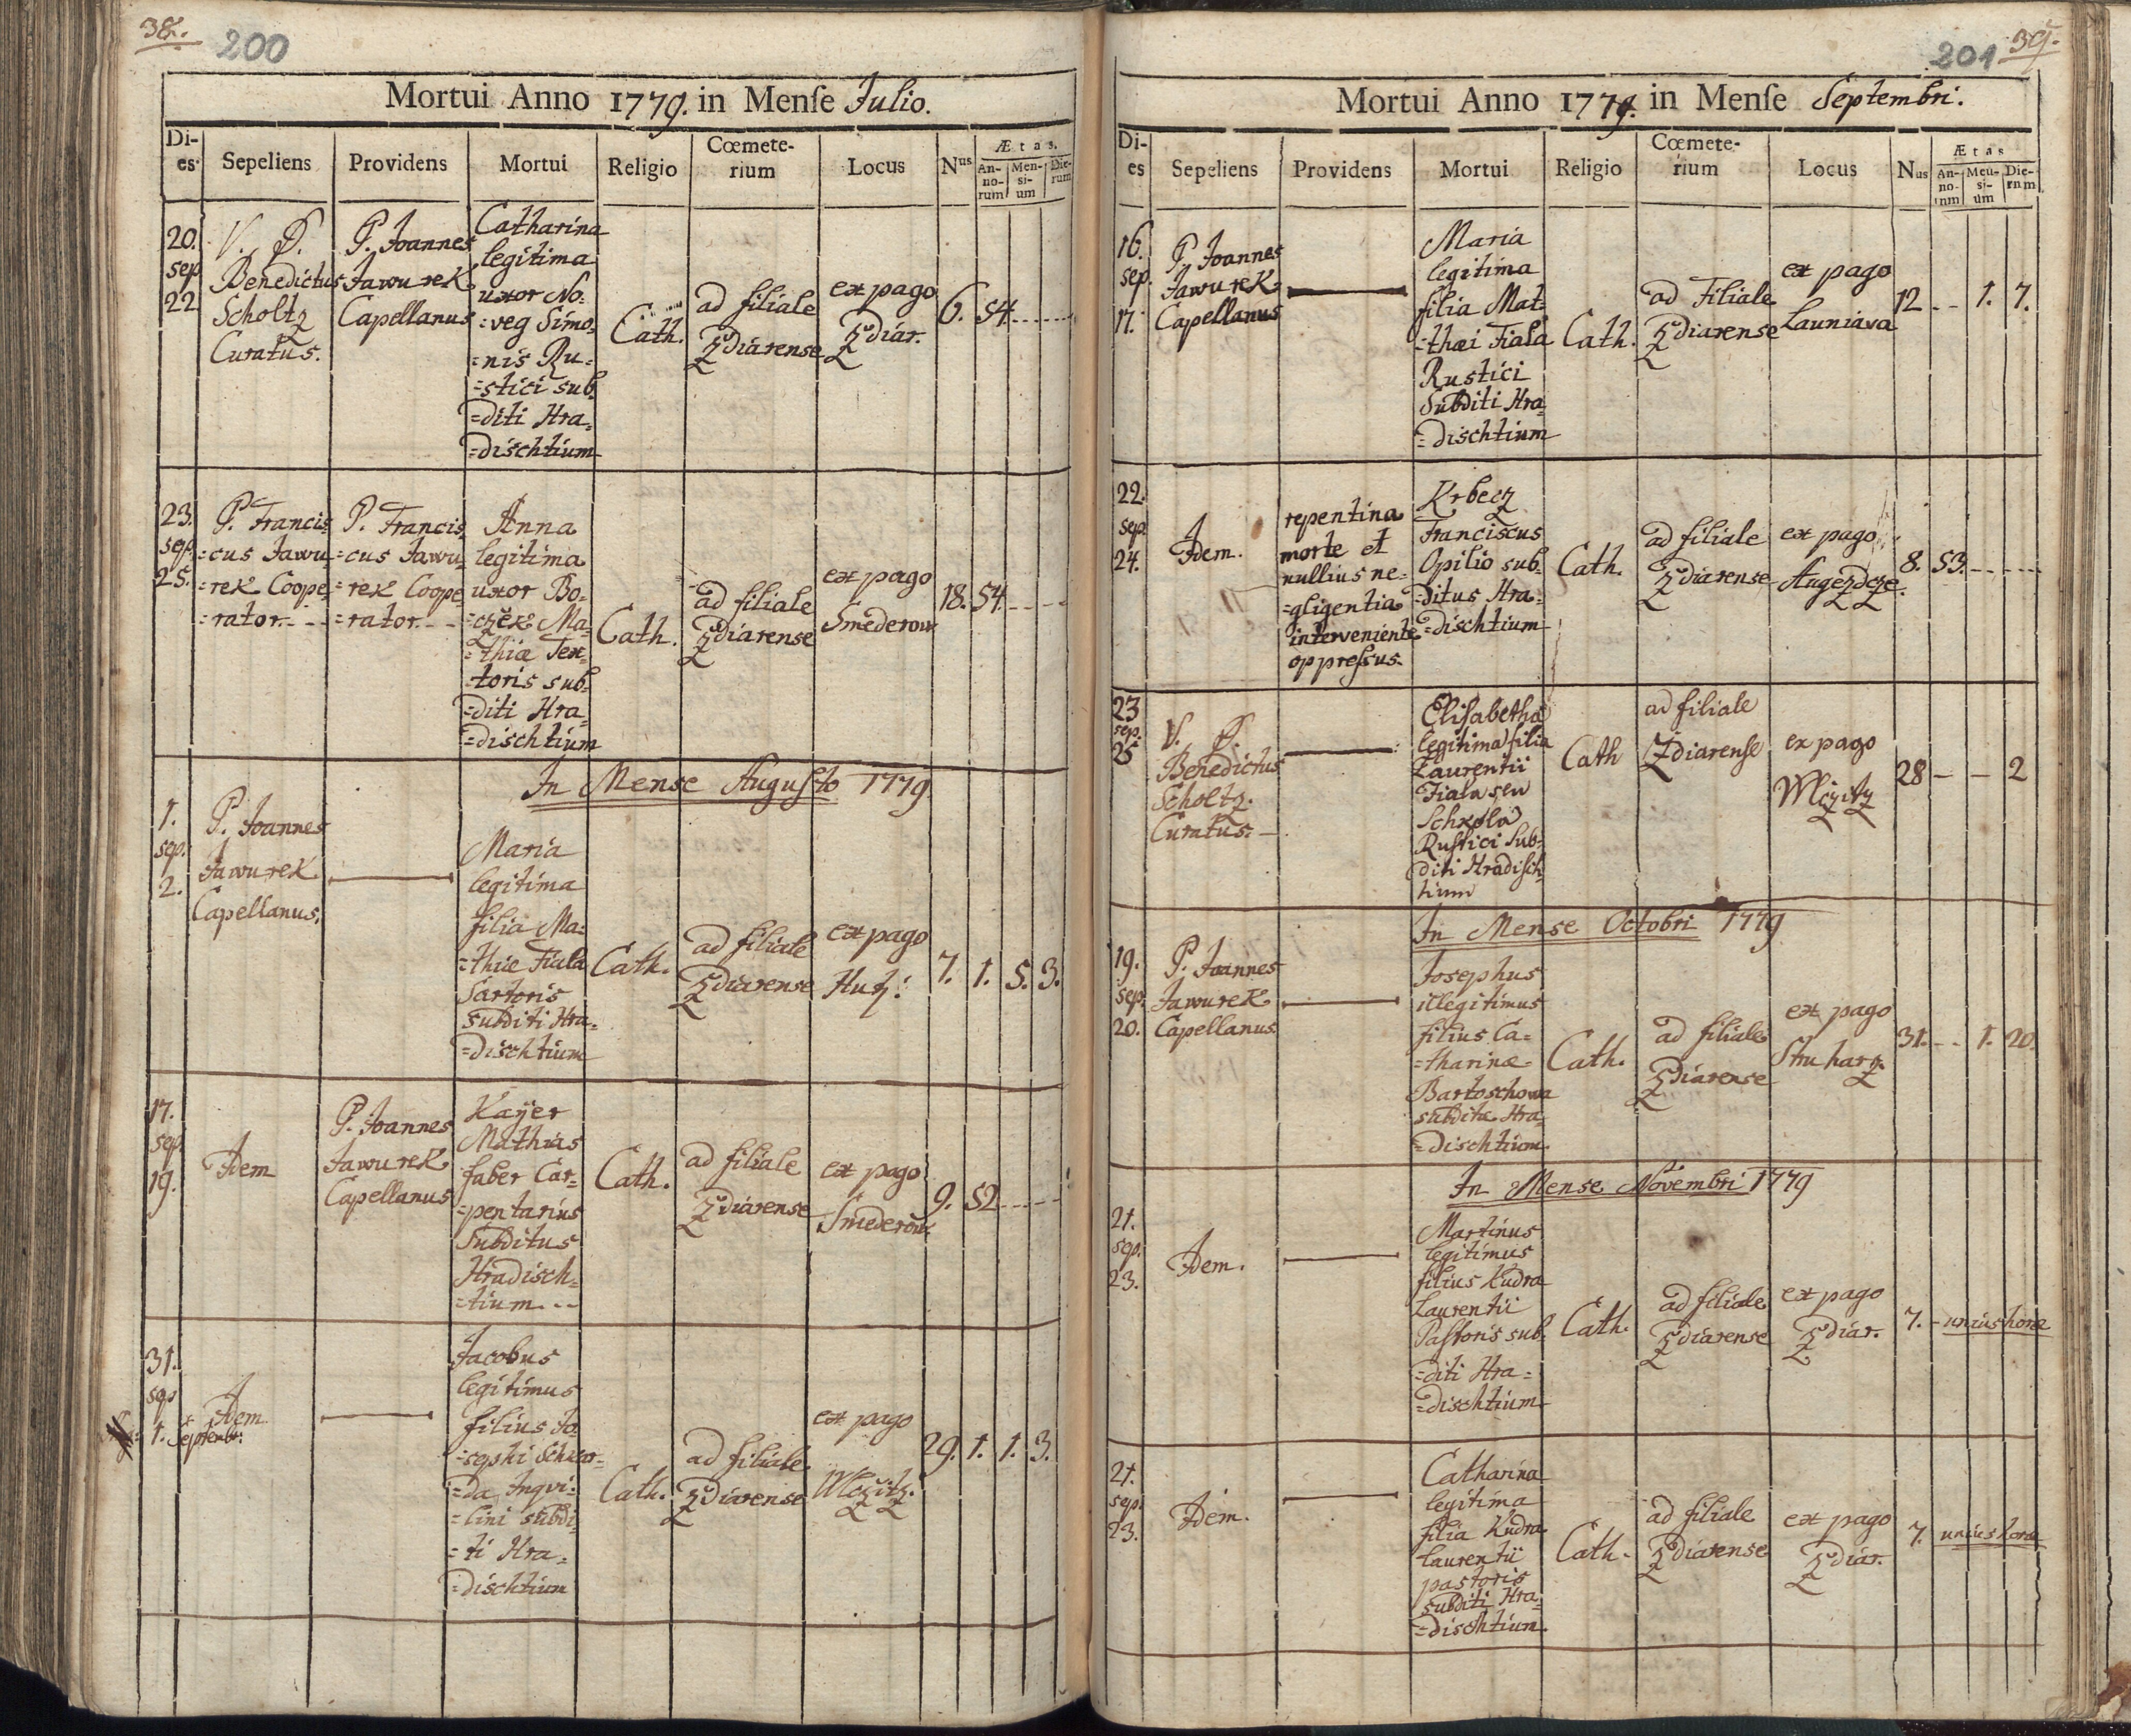 38.
200
Mortui Anno 1779. in Menſe Julio.
Di-
es
Sepeliens
Providens
Mortui
Religio
Cœmete-
rium
Locus
Nus
Ætas.
An-
no-
rum
Men-
si-
um
Die-
rum
20.
sep.
22
V. D.
Benedictus
Scholtz
Curatus.
P. Joannes
Jawurek
Capellanus
Catharina
legitima
uxor No:
=veg Simo=
=nis Ru=
=stici sub=
=diti Hra=
=dischtium
Cath.
ad filiale
Zdiarense
ex pago
Zdiar.
6.
54.
23.
sep.
25.
P. Francis=
=cus Jawu=
=rek Coope=
=rator.
P. Francis=
=cus Jawu=
=rek Coope=
=rator.
Anna
legitima
uxor Bo=
=czek Ma=
=thiæ Tex=
=toris sub=
=diti Hra=
=dischtium
Cath.
ad filiale
Zdiarense
ex pago
Smederow
18.
54.
In Mense Augusto 1779
1.
sep.
2.
P. Joannes
Jawurek
Capellanus.
Maria
legitima
filia Ma=
=thiæ Fiala
Sartoris
subditi Hra=
=dischtium
Cath.
ad filiale
Zdiarense
ex pago
Hutj:
7.
1.
5.
3.
17.
sep.
19.
Idem
P. Joannes
Jawurek
Capellanus
Kayer
Mathias
faber Car=
=pentarius
Subditus
Hradisch=
=tium.
Cath.
ad filiale
Zdiarense
ex pago
Smederow.
9.
52
31.
sep
1. Septembr:
Idem.
Jacobus
legitimus
filius Jo
=sephi
=da Inqvi=
=lini subdi=
=ti Hra=
=dischtium
Cath.
ad filiale.
Zdiarense
ex pago
Wlczitz.
29.
1.
1.
3.
201
39.
Mortui Anno 1779. in Menſe Septembri.
Di-
es
Sepeliens
Providens
Mortui
Religio
Cœmete-
rium
Locus
Nus
Ætas
An-
no-
rum
Men-
si-
um
Die-
rum
16.
sep.
17.
P. Joannes
Jawurek
Capellanus
Maria
legitima
filia Mat=
=thæi Fiala
Rustici
Subditi Hra=
=dischtium
Cath.
ad Filiale
Zdiarense
ex pago
Launiava
12
1.
7.
22.
sep.
24.
Idem.
repentina
morte et
nullius ne=
=gligentia
interveniente
oppreſsus.
Krbecz
Franciscus
Opilio sub=
=ditus Hra=
=dischtium
Cath.
ad filiale
Zdiarense
ex pago
Augezdcze.
8.
53.
23
sep.
25
V. D.
Benedictus
Scholtz.
Curatus.
Eliſabetha
legitima filia
Laurentii
Fiala seu
Rustici Sub=
diti Hradiſch=
tium
Cath
ad filiale
Zdiarenſe
ex pago
Wlczitz
28
2
In Mense Octobri 1779
19.
sep.
20.
P. Joannes
Jawurek
Capellanus.
Josephus
illegitimus
filius Ca=
=tharinæ
Bartoschowa
subditæ Hra=
=dischtium.
Cath.
ad filiale
Zdiarense
ex pago
Struharz.
31.
1.
20.
In Mense Novembri 1779
21.
sep.
23.
Idem.
Martinus
legitimus
filius Kudra
Laurentii
Paſtoris sub=
=diti Hra=
=dischtium
Cath.
ad filiale
Zdiarense
ex pago
Zdiar.
7.
unius horæ
21.
sep.
23.
Idem.
Catharina
legitima
filia Kudra
Laurentii
pastoris
subditi Hra=
=dischtium.
Cath.
ad filiale
Zdiarense
ex pago
Zdiar.
7.
unius horæ